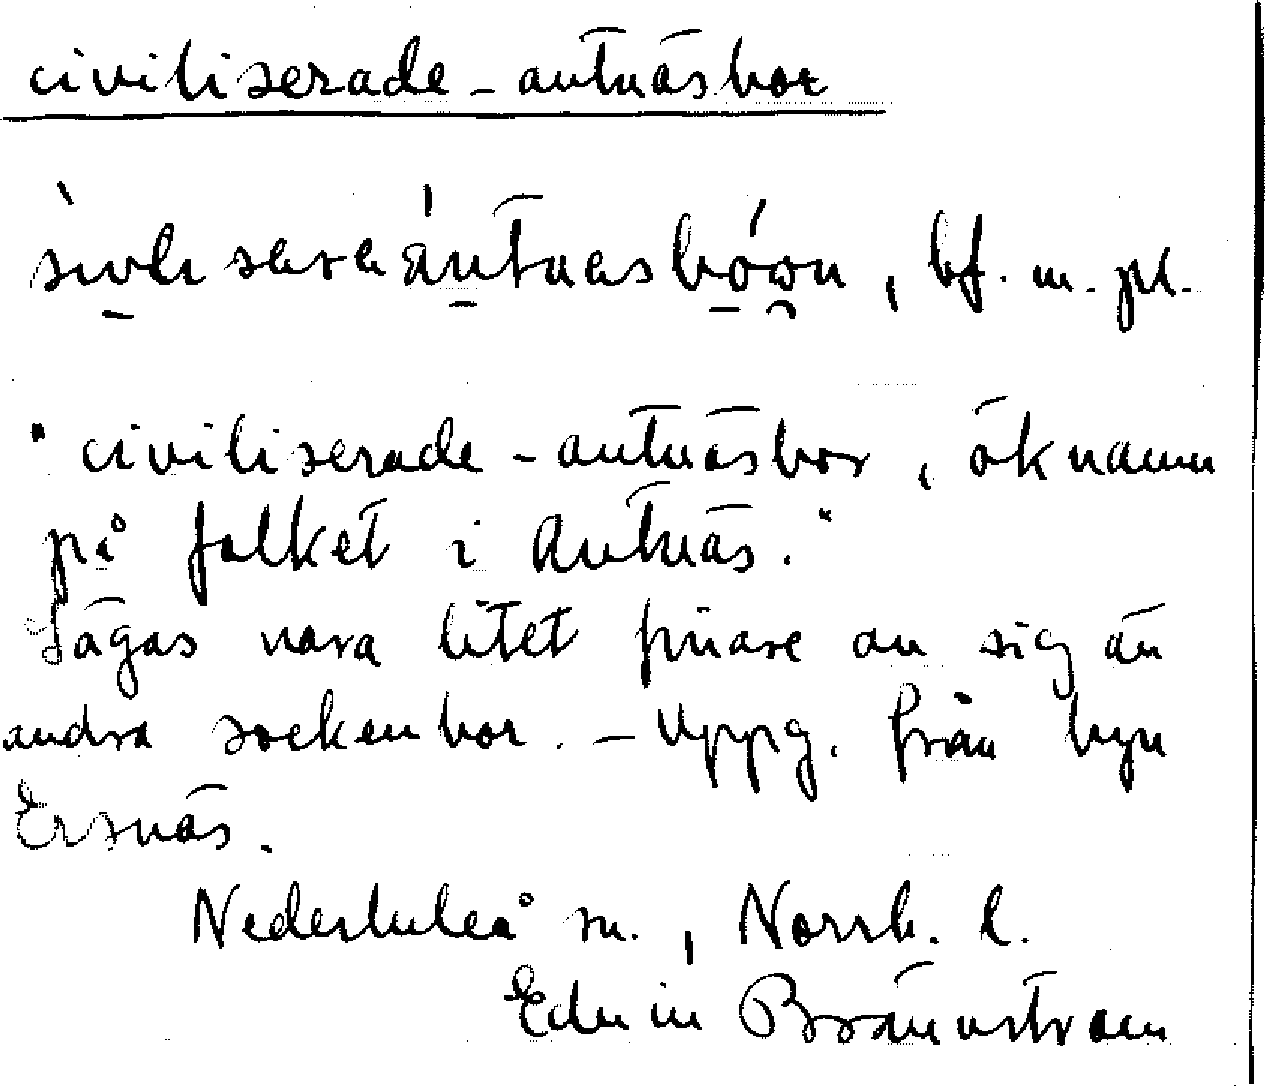 civiliserade-antnäsbor
bf. m. pl.
"civiliserade-antnäsbor, öknamn
på folket i Antnäs."
Sägas vara litet finare an sig än
andra sockenbor. – Uppg. från byn
Ersnäs.
Nederluleå sn., Norrb. l.
Edvin Brännström